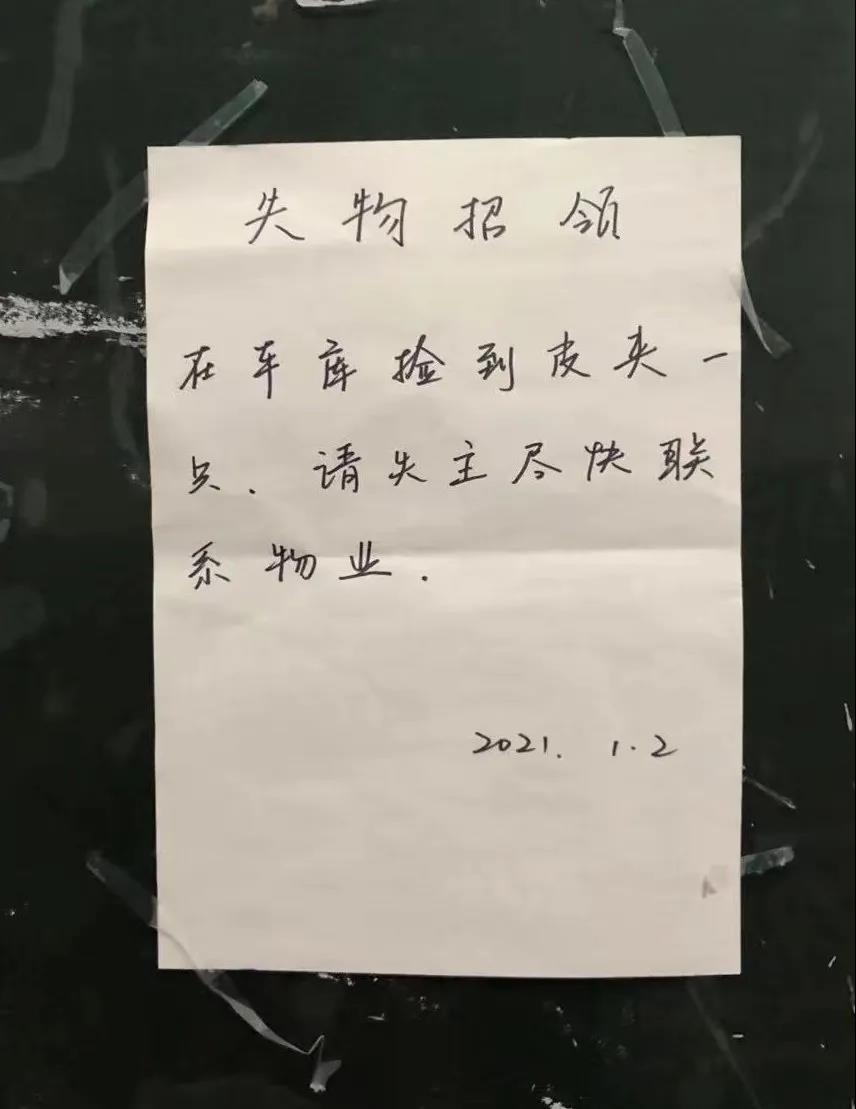 失物招领
在车库捡到皮夹一
只.请失主尽快联
系物业.
2021.1.2